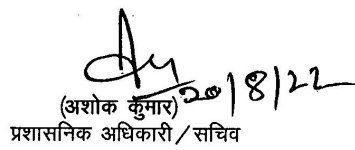 20/8/22
(अशोक कुमार)
प्रशासनिक अधिकारी / सचिव